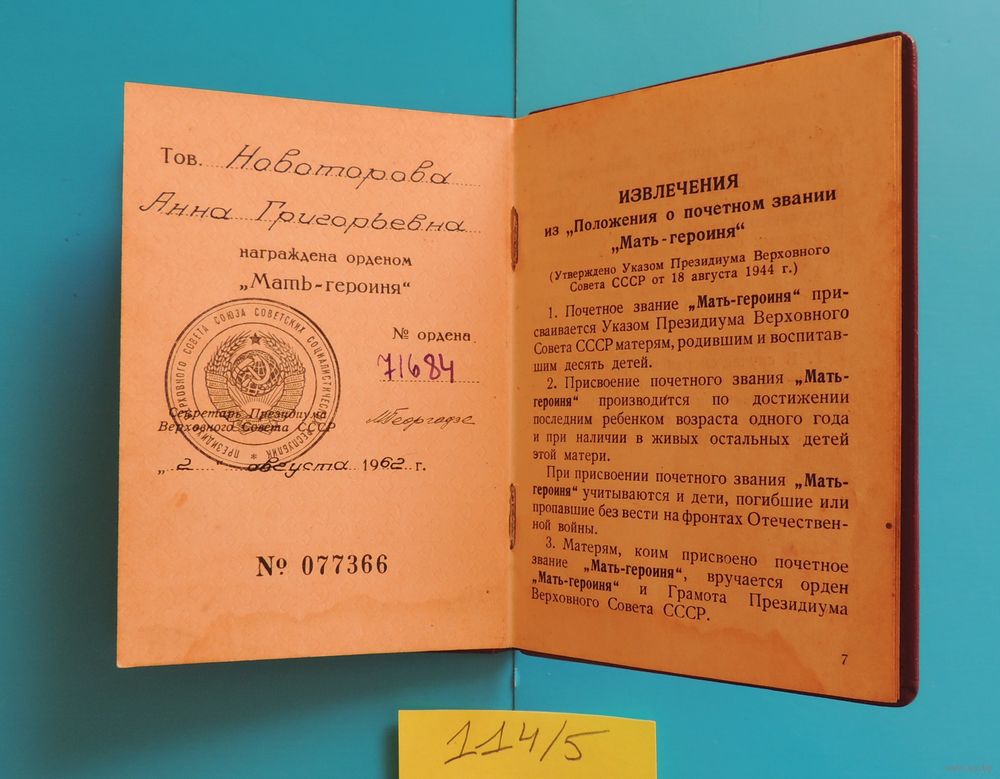 Тов. Новоторова
Анна Григорьевна
награждена орденом
„Мать-героиня“
ПРЕЗИДИУМ ВЕРХОВНОГО СОВЕТА СОЮЗА СОВЕТСКИХ СОЦИАЛИСТИЧЕСКИХ РЕСПУБЛИК *
№ ордена
71684
Секретарь Президиума
Верховного Совета СССР
МГеоргадзе
„2“ августа 1962 г.
№ 077366
ИЗВЛЕЧЕНИЯ
из „Положения о почетном звании
„Мать-героиня“
(Утверждено Указом Президиума Верховного
Совета СССР от 18 августа 1944 г.)
1. Почетное звание „Мать-героиня“ при-
сваивается Указом Президиума Верховного
Совета СССР матерям, родившим и воспитав-
шим десять детей.
2. Присвоение почетного звания „Мать-
героиня“ производится по достижении
последним ребенком возраста одного года
и при наличии в живых остальных детей
этой матери.
При присвоении почетного звания „Мать-
героиня“ учитываются и дети, погибшие или
пропавшие без вести на фронтах Отечествен-
ной войны.
3. Матерям, коим присвоено почетное
звание „Мать-героиня“, вручается орден
„Мать-героиня“ и Грамота Президиума
Верховного Совета СССР.
7
114/5